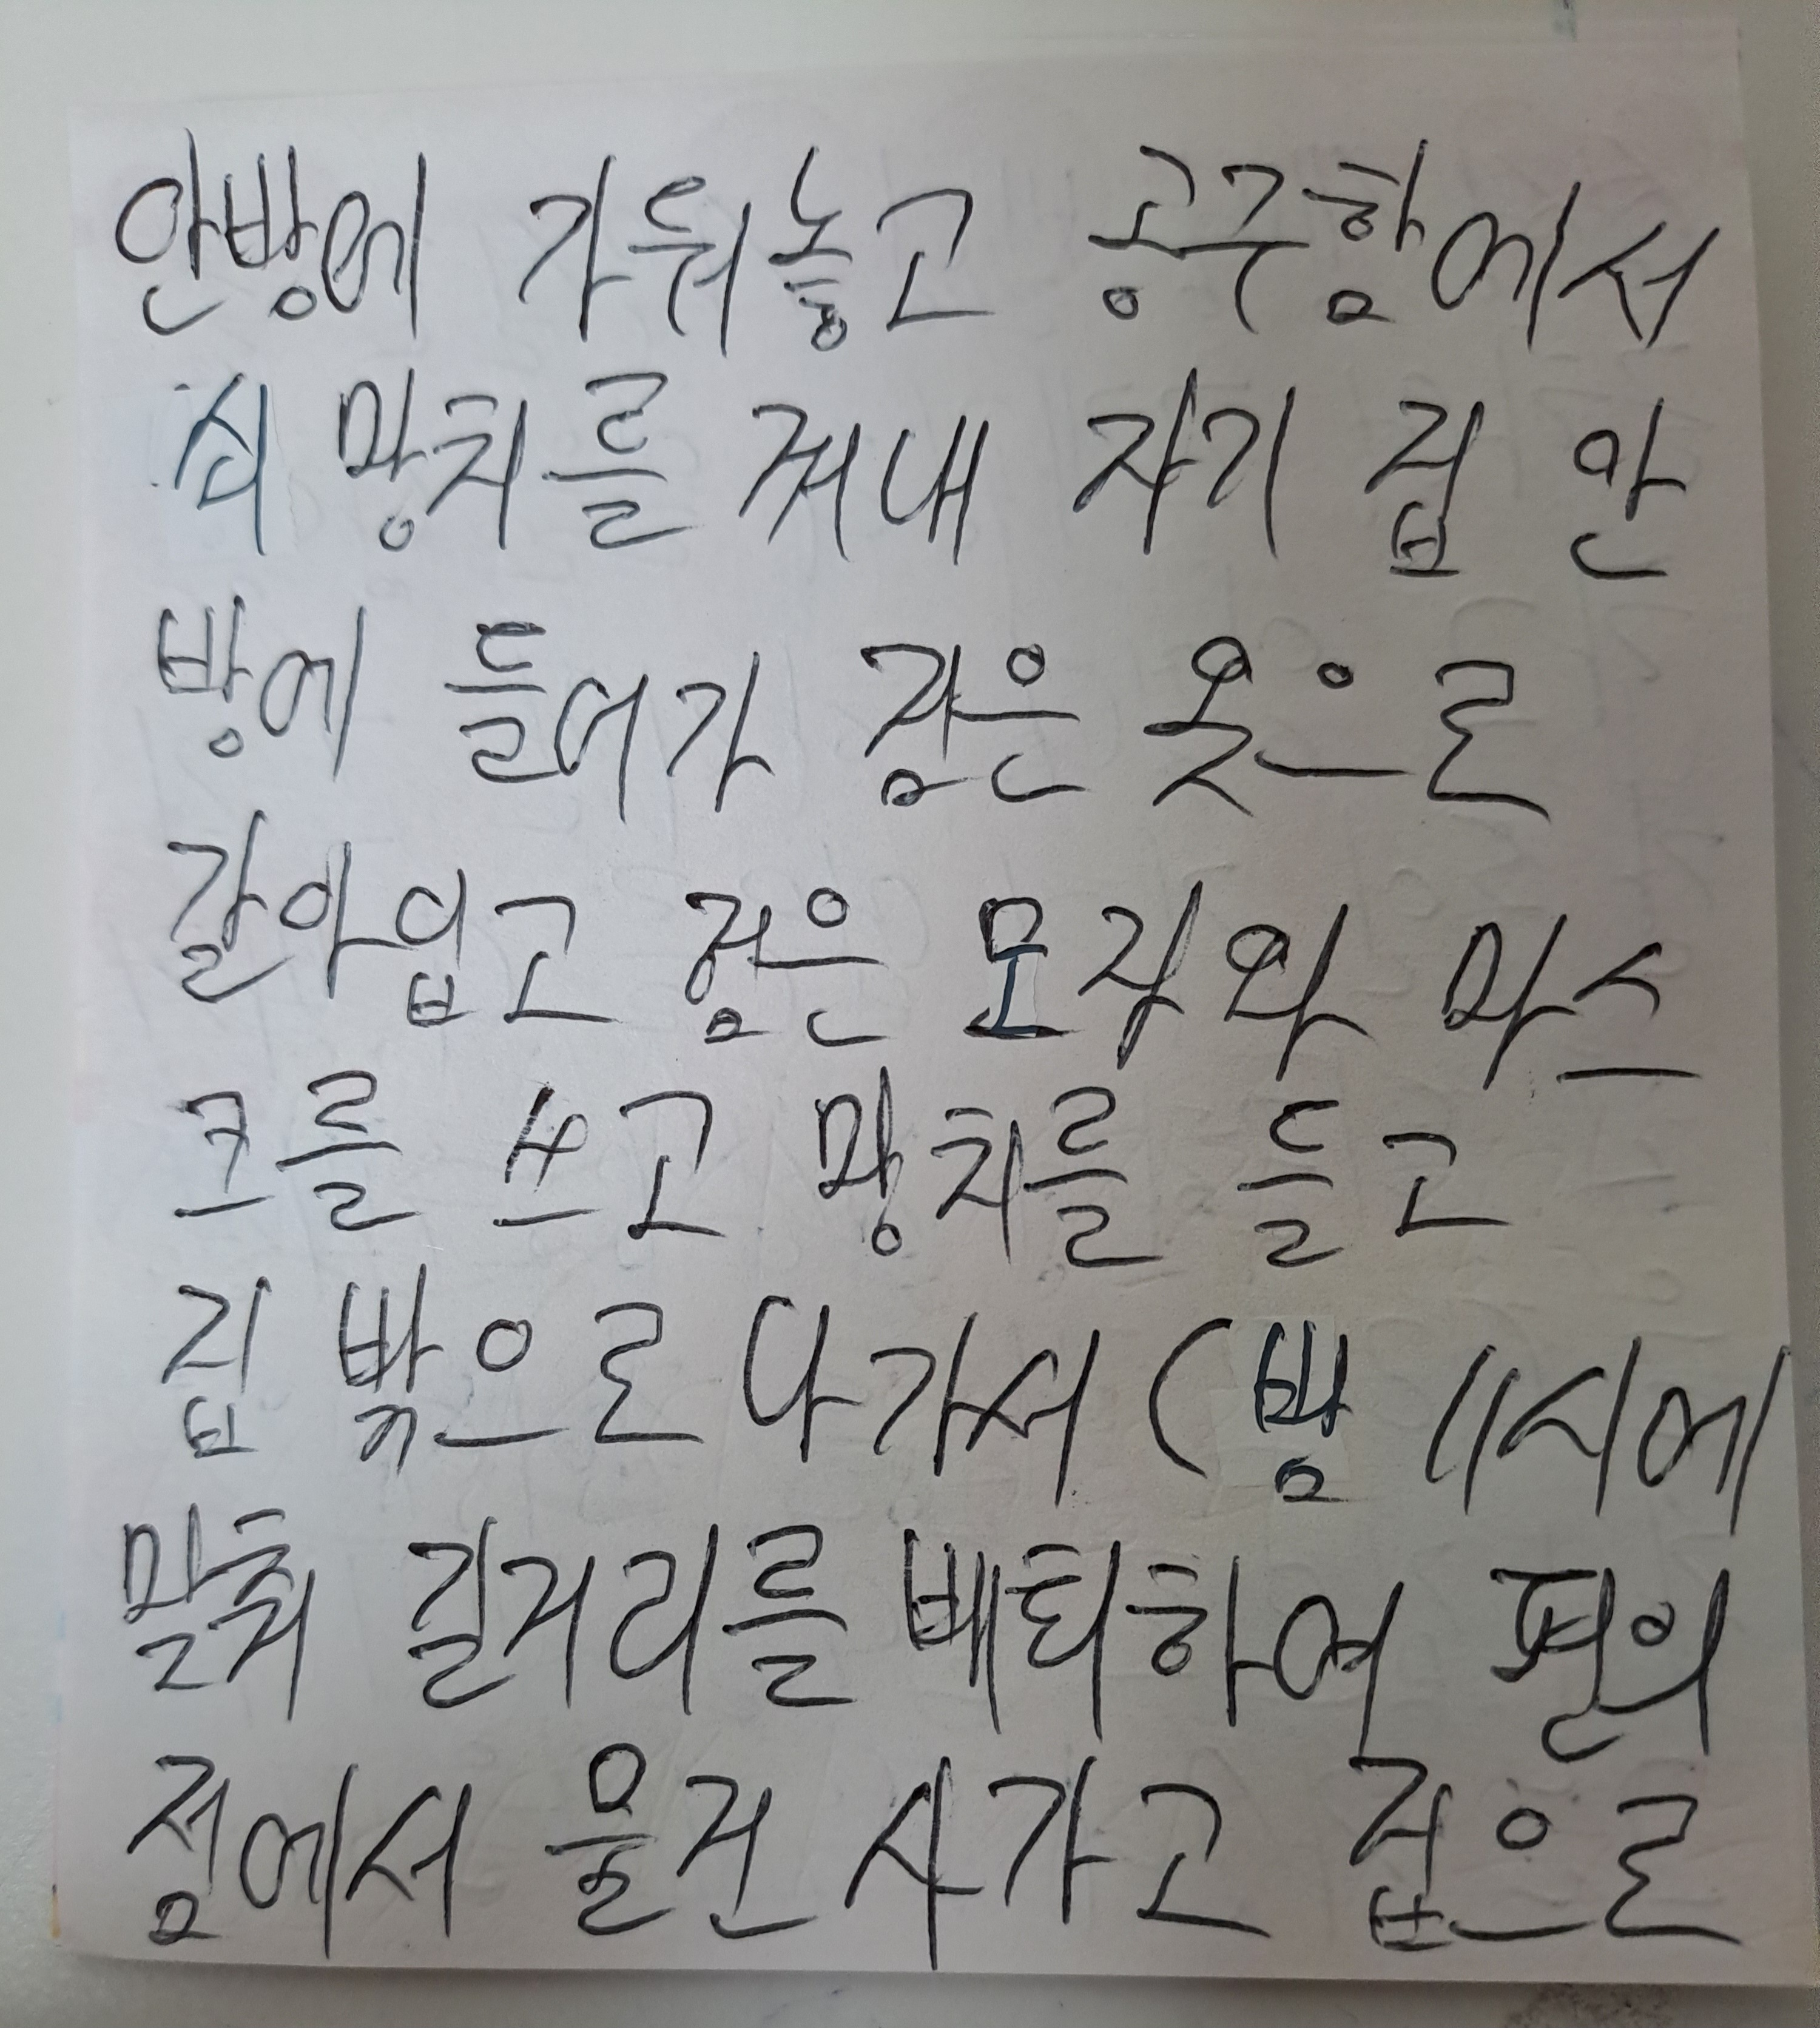 안방에 가둬놓고 공구함에서
쇠 망치를 꺼내 자기 집 안
방에 들어가 검은 옷으로
갈아입고 검은 모자와 마스
크를 쓰고 망치를 들고
집 밖으로 나가서 (밤 11시에
맞춰 길거리를 배회하여 편의
점에서 물건 사가고 집으로